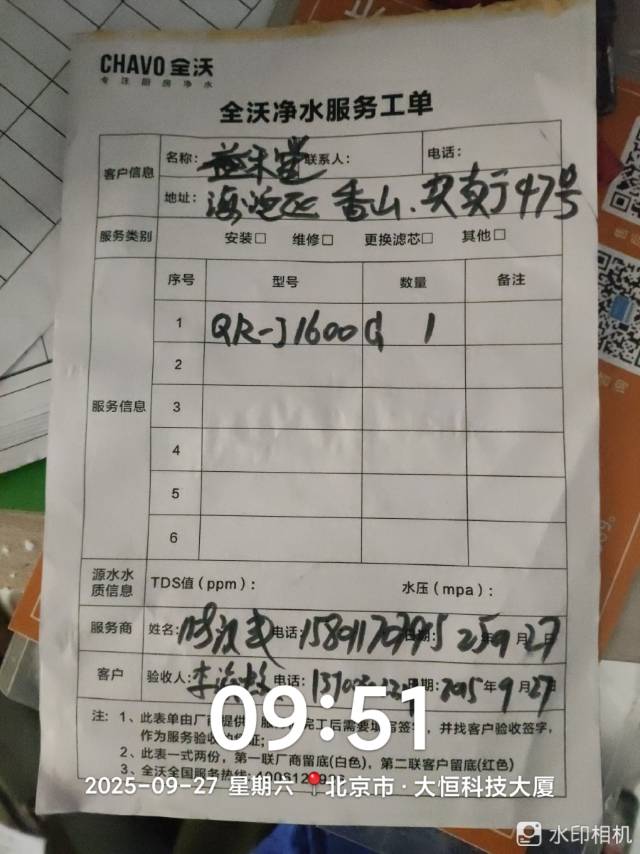 CHAVO 全沃
专注厨房净水
全沃净水服务工单
客户信息
名称：益禾堂 联系人： 电话：
地址：海淀区 香山. 买卖街47号
服务类别 安装□ 维修□ 更换滤芯□ 其他□
服务信息
序号 型号 数量 备注
1 QR-J1600G 1
2
3
4
5
6
源水水质信息 TDS值（ppm）： 水压（mpa）：
服务商 姓名： 电话： 25年9月27日
客户 验收人： 电话： 日期： 年9月27日
注：1、此表单由厂商提供，服务 完工后需要填写签字，并找客户验收签字，
作为服务验收 证；
2、此表一式两份，第一联厂商留底(白色)，第二联客户留底(红色)
3、全沃全国服务热线：
09:51
2025-09-27 星期六 北京市·大恒科技大厦
水印相机